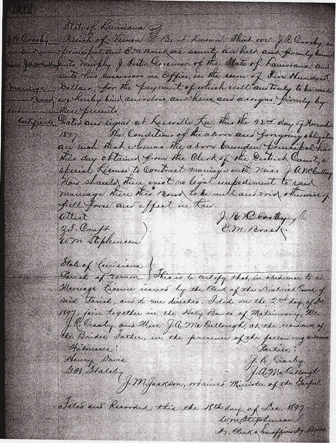 State of Louisiana
Parish of Vernon Be it Known That we J.R. Crosby
principal and E.M. Brack as surety are held and firmly bound
unto Murphy J. Foster Governor of the State of Louisiana and
his successors in office in the sum of Five Hundred
Dollars, for the payment of which well and truly to be made
we hereby bind ourselves, our heirs and assigns firmly by
these presents
Dated and signed at Leesville La this the 22nd day of November
1897. The Condition of the above and foregoing obligation
are such that whereas the above bounden principal has
this day obtained from the Clerk of the District Court, a
special License to Contract marriage with Miss J.A. McCullough
Now should there exist no legal impediment to said
marriage then this Bond to be null and void, otherwise of
full force and effect in Law.
Attest J.R. Crosby
Craft E.M. Brack
Wm Stephenson
State of Louisiana
Parish of Vernon This is to certify that in obedience to a
Marriage License issued by the Clerk of the District Court of
said Parish, and to me directed. I did on the 2nd day of Dec
1897, join together in the Holy Bands of Matrimony, Mr.
J.R. Crosby and Miss J.A. McCullough, at the residence of
the Brides Father, in the presence of the following witnesses
Witnesses: Parties:
Henry Davis J.R. Crosby
J.A. McCullough
J.M. Jackson, ordained Minister of the Gospel
Filed and Recorded this the 18th day of Dec. 1897
Wm Stephenson
Dy. Clerk